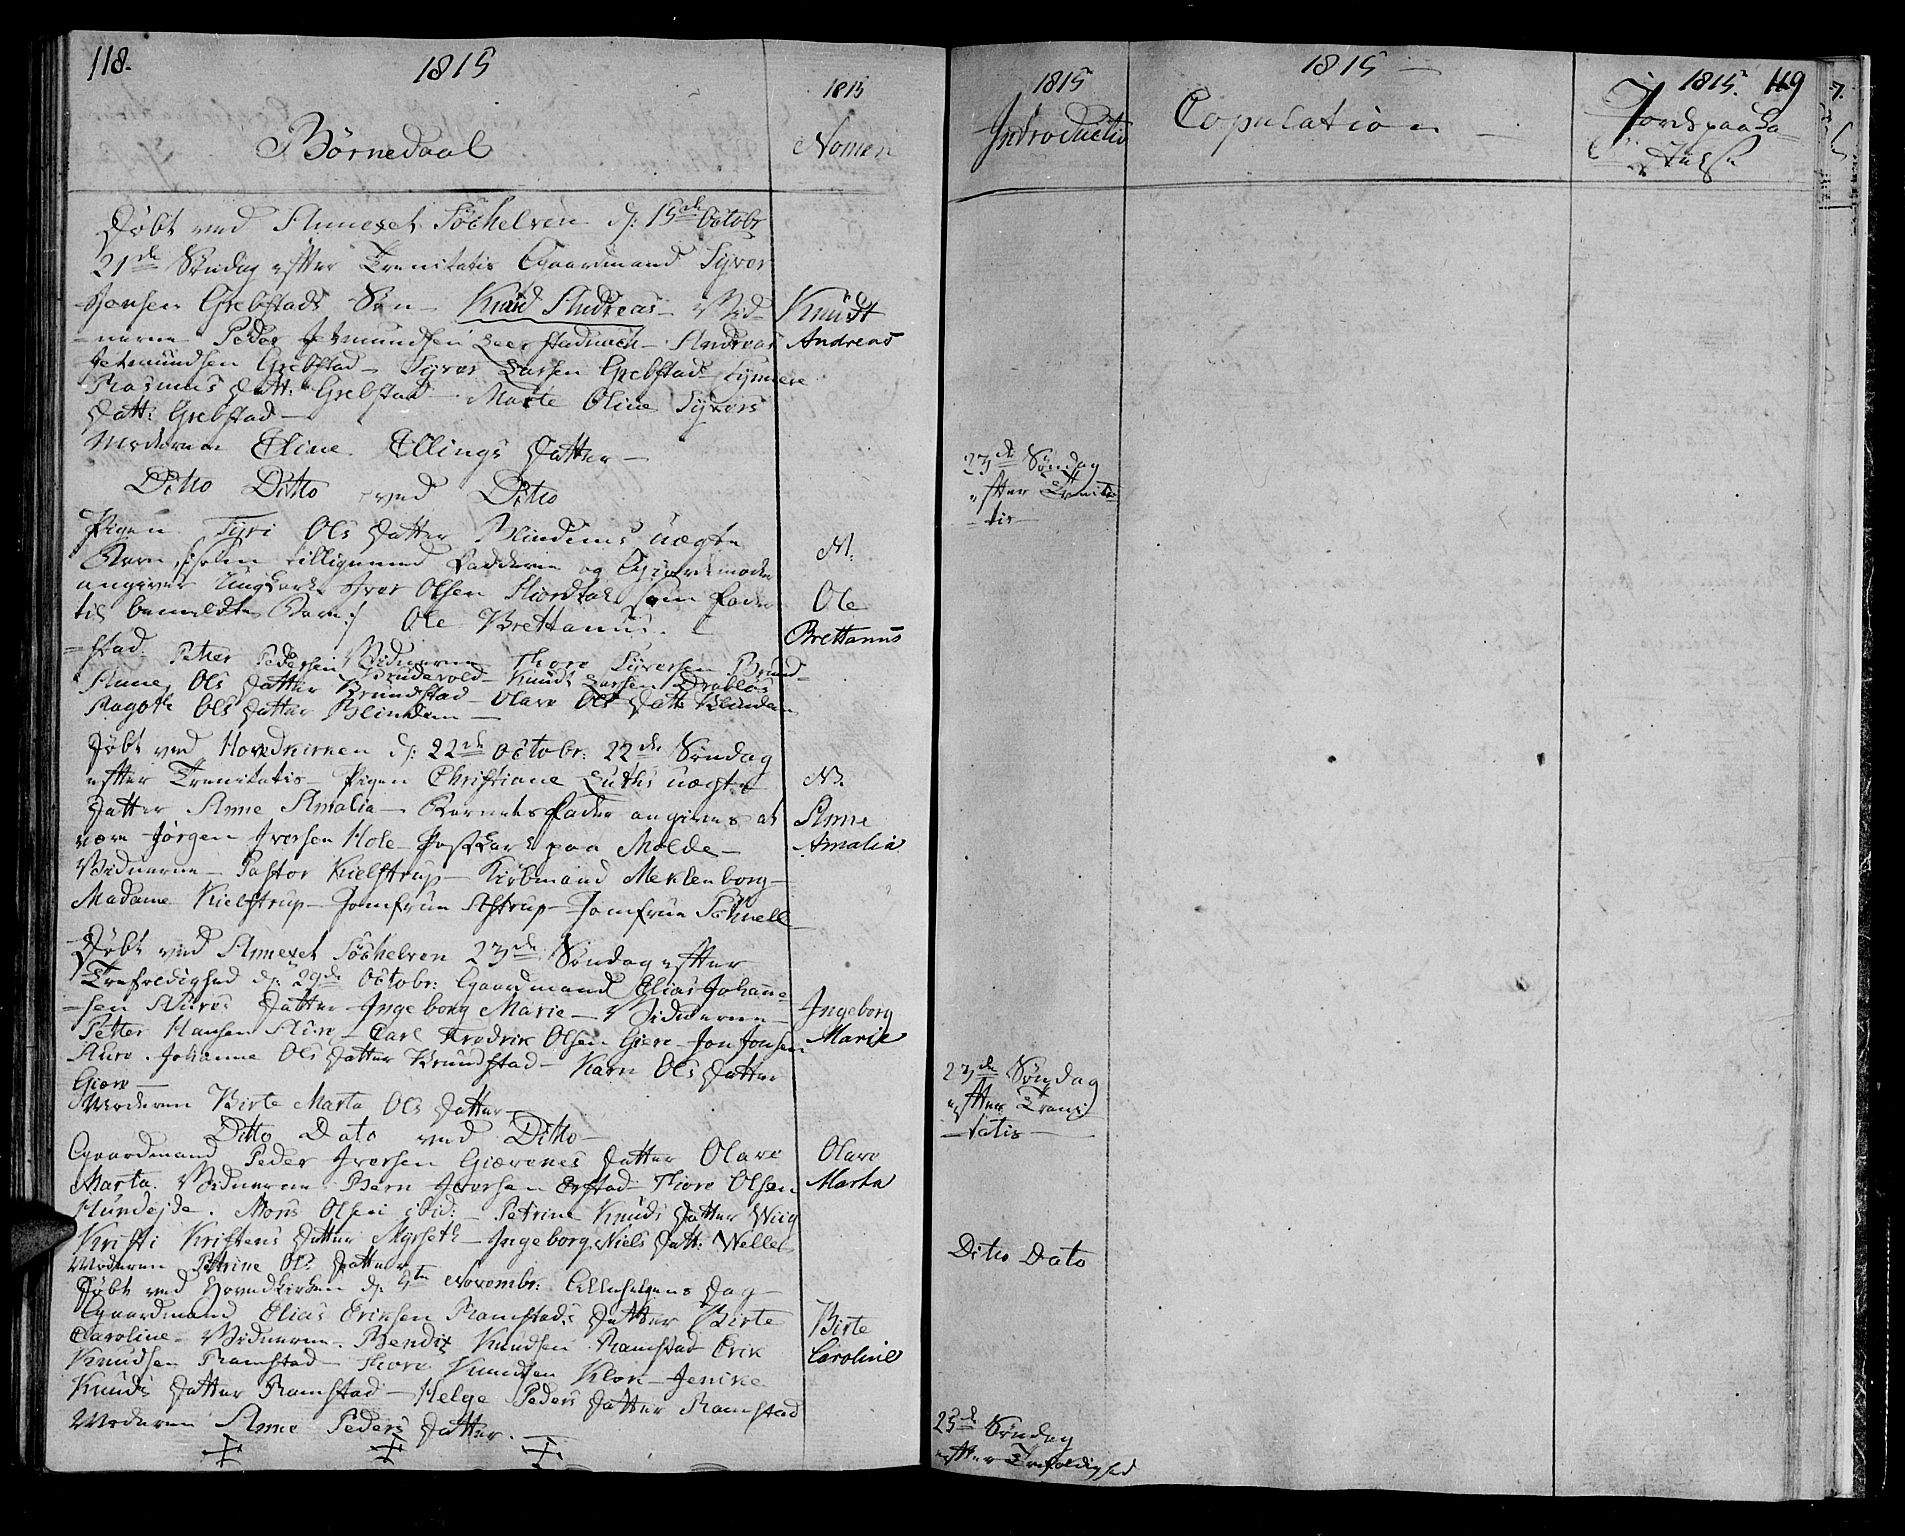 118.
1815
1815
Børnedaab
Nomen
Døbt ved Annexet Söchelven d: 15de Octobr
21de Søndag efter Trenitatis Gaardmand Syver
Jonsen Grebstads Søn - Knud Andreas - Vid-
-nerne Peder Jetmundsen Leerstadvack - Andreas
Jetmundsen Grebstad - Syver Larsen Grebstad - Synneve
Rasmus Datt: Grebstad - Marte Oline Syvers
Datt: Grebstad -
Moderen Eline Ellings Datter -
Knudt
Andreas
Ditto Ditto ved Ditto
Pigen Syri Ols Datter Blindems uægte
Barn /: som tilligemed Fadderne og Giordemoder
angiver Ungkarl Iver Olsen som Fader
til bemeldte Barn :/ Ole Brettanus. -
N.
Ole
Brettanus
Vidnerne Thore Syversen Brund-
-stad Petter Pedersen Brudevold - Knudt Larsen Drabløs
Anne Ols Datter Brundstad - Olave Ols Datt Blindem
Ragothe Ols Datter Blindem -
Døbt ved Hovedkirken d: 22de Octobr: 22de Søndag
efter Trenitatis - Pigen Christiane Luths uægte
Datter Anne Amalia - Barnets Fader angives at
være Jørgen Iversen Hole Postkarl paa Molde -
Vidnerne - Pastor Kielstrup - Kiøbmand Meklenborg -
Madame Kielstrup - Jomfrue Astrup - Jomfrue Schnell
N.
Anne
Amalia
Døbt ved Annexet Söchelven 23de Søndag efter
Trefoldighed d: 29de Octobr: Gaardmand Elias Johanne-
-sen Aures Datter Ingeborg Marie - Vidnerne -
Petter Hansen Aure - Carl Fredrik Olsen Giere - Jon Jonsen
Aure - Johanne Ols Datter Brundstad - Karn Ols Datter
Giære -
Moderen Birte Marta Ols Datter -
Ingeborg
Marie
Ditto Dato ved Ditto -
Gaardmand Peder Iversen Giærenes Datter Olave
Marta. Vidnerne Bern Iversen Erstad - Thore Olsen
Hundejde. Mons Olsen ibid: - Petrine Knuds Datter Wiig
Kristi Kristens Datter Myrseth - Ingeborg Niels Datt: Welle
Moderen Petrine Ols Datter
Olave
Marta
Døbt ved Hovedkirken d: Novembr: Allehelgens Dag -
Gaardmand Elias Eriksen Ramstads Datter Birte
Caroline - Vidnerne. Bendix Knudsen Ramstad Erik
Knudsen Ramstad - Thore Knudsen Klok - Jenike
Knuds Datter Ramstad - Helge Peders Datter Ramstad
Moderen Anne Peders Datter. -
Birte
Caroline
1815
Introductio
1815 -
Copulation -
1815. 119
Jordspaaka-
stelse
23de Søndag
efter Trenita-
-tis -
23de Søndag
efter Treni-
-tatis -
Ditto Dato
25de Søndag
efter Trefoldighed